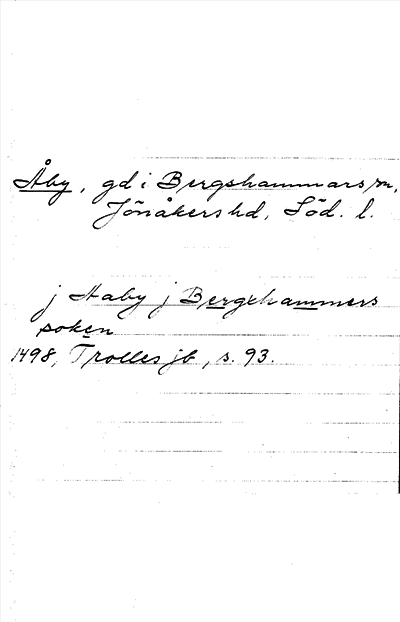 Åby, gd i Bergshammars sn,
Jönåkers hd, Söd. l.
j Aaby j Bergehammers
soken
1498, Trolles jb, s. 93.